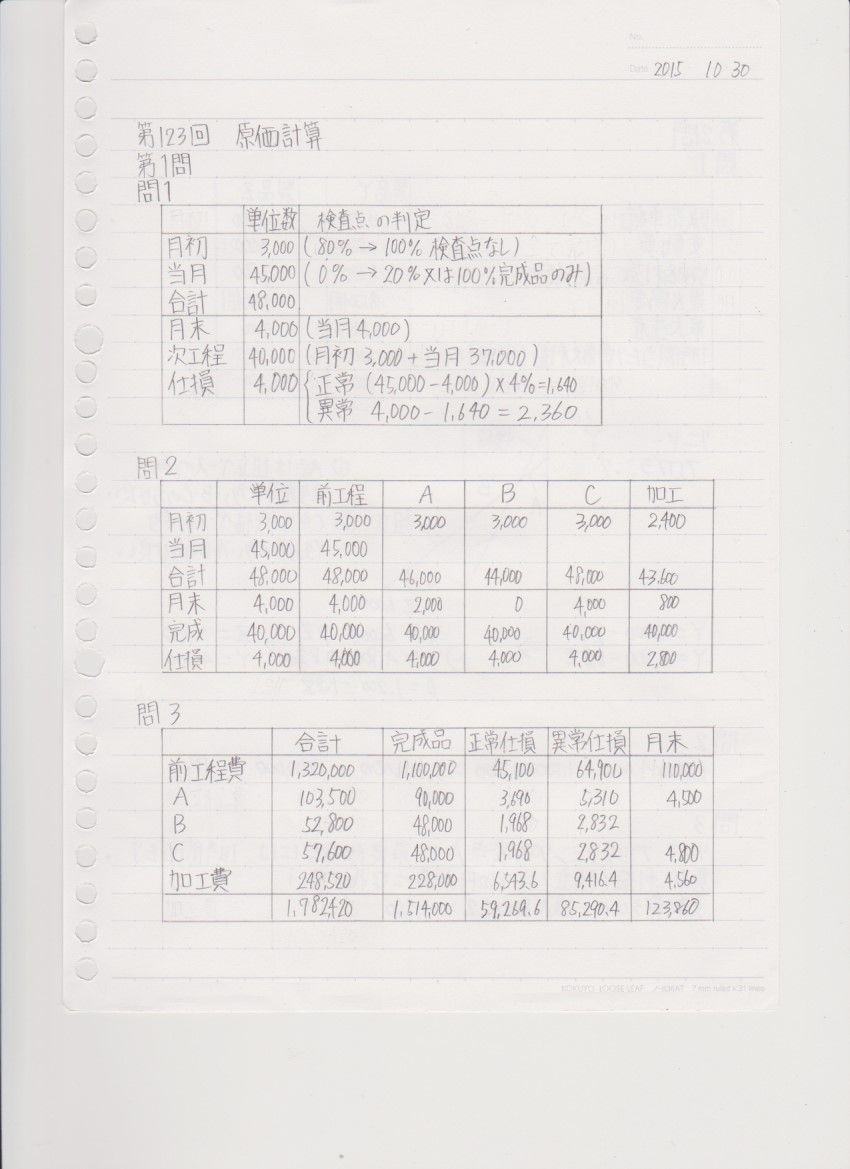 No.
Date 2015 10 30
第123回 原価計算
第1問
問1
単位数 検査点の判定
月初 3,000 (80% → 100% 検査点なし)
当月 45,000 (0% → 20%又は100%完成品のみ)
合計 48,000
月末 4,000 (当月4,000)
次工程 40,000 (月初 3,000 + 当月 37,000)
仕損 4,000 { 正常 (45,000 - 4,000) × 4% = 1,640
異常 4,000 - 1,640 = 2,360
問2
単位 前工程 A B C 加工
月初 3,000 3,000 3,000 3,000 3,000 2,400
当月 45,000 45,000
合計 48,000 48,000 46,000 44,000 48,000 43,600
月末 4,000 4,000 2,000 0 4,000 800
完成 40,000 40,000 40,000 40,000 40,000 40,000
仕損 4,000 4,000 4,000 4,000 4,000 2,800
問3
合計 完成品 正常仕損 異常仕損 月末
前工程費 1,320,000 1,100,000 45,100 64,900 110,000
A 103,500 90,000 3,690 5,310 4,500
B 52,800 48,000 1,968 2,832
C 57,600 48,000 1,968 2,832 4,800
加工費 248,520 228,000 6,543.6 9,416.4 4,560
1,782,420 1,514,000 59,269.6 85,290.4 123,860
KOKUYO LOOSE-LEAF 7 mm ruled × 31 lines